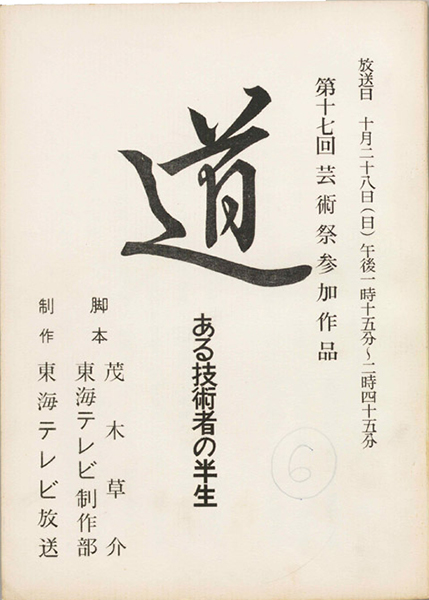 放送日　十月二十八日（日）午後一時十五分～二時四十五分
第十七回芸術祭参加作品
道
ある技術者の半生
脚本　茂木草介
東海テレビ制作部
制作　東海テレビ放送
6